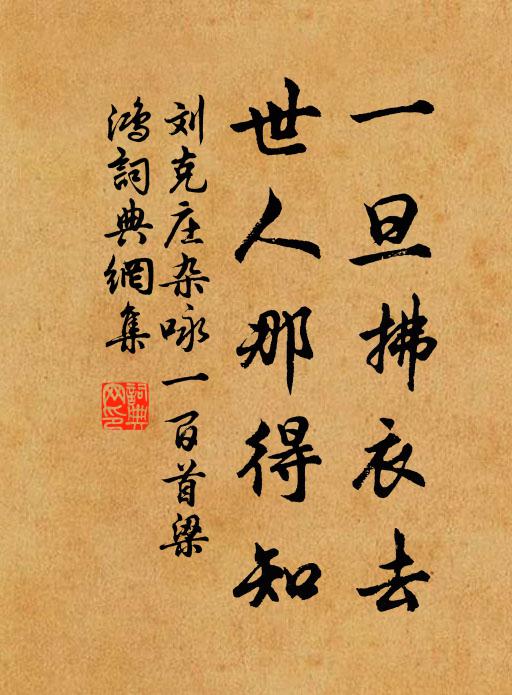 一旦拂衣去
世人那得知
刘克庄杂咏一百首梁
鸿词典網集
詞典网印